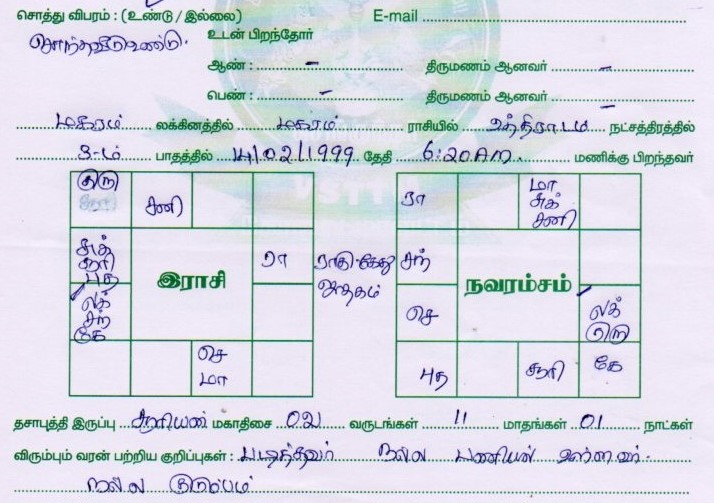 சொத்து விபரம் : (உண்டு / இல்லை) E-mail
சொந்தவீடு உண்டு. உடன் பிறந்தோர்
ஆண் : – திருமணம் ஆனவர் –
பெண் : – திருமணம் ஆனவர் –
மகரம் லக்கினத்தில் மகரம் ராசியில் உத்திராடம் நட்சத்திரத்தில்
3-ம் பாதத்தில் 14/02/1999 தேதி 6:20 A.m. மணிக்கு பிறந்தவர்
குரு சனி ரா மா சுக் சனி
சுக் சூரி புத இராசி ரா ராகு-கேது ஜாதகம் சந் நவரம்சம்
லக் சந் கே செ லக் குரு
செ மா புத சூரி கே
தசாபுத்தி இருப்பு சூரியன் மகாதிசை 02 வருடங்கள் 11 மாதங்கள் 01 நாட்கள்
விரும்பும் வரன் பற்றிய குறிப்புகள் : படித்தவர் நல்ல பணியில் உள்ளவர்.
நல்ல குடும்பம்